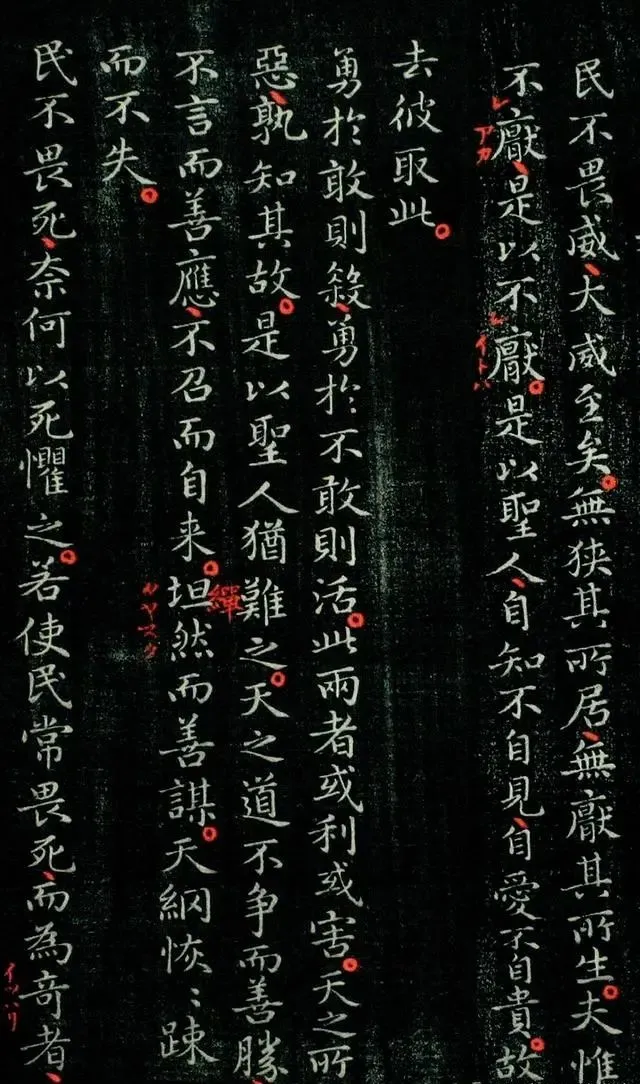 民不畏威大威至矣無狭其所居無厭其所生夫惟
不厭是以不厭是以聖人自知不自見自愛不自貴故
レ
アカ
レ
イトハ
去彼取此
勇於敢則殺勇於不敢則活此兩者或利或害天之所
惡孰知其故是以聖人猶難之天之道不争而善勝
不言而善應不召而自来坦然而善謀天綱恢〻踈
繟
而不失
民不畏死奈何以死懼之若使民常畏死而為奇者
イツハリ